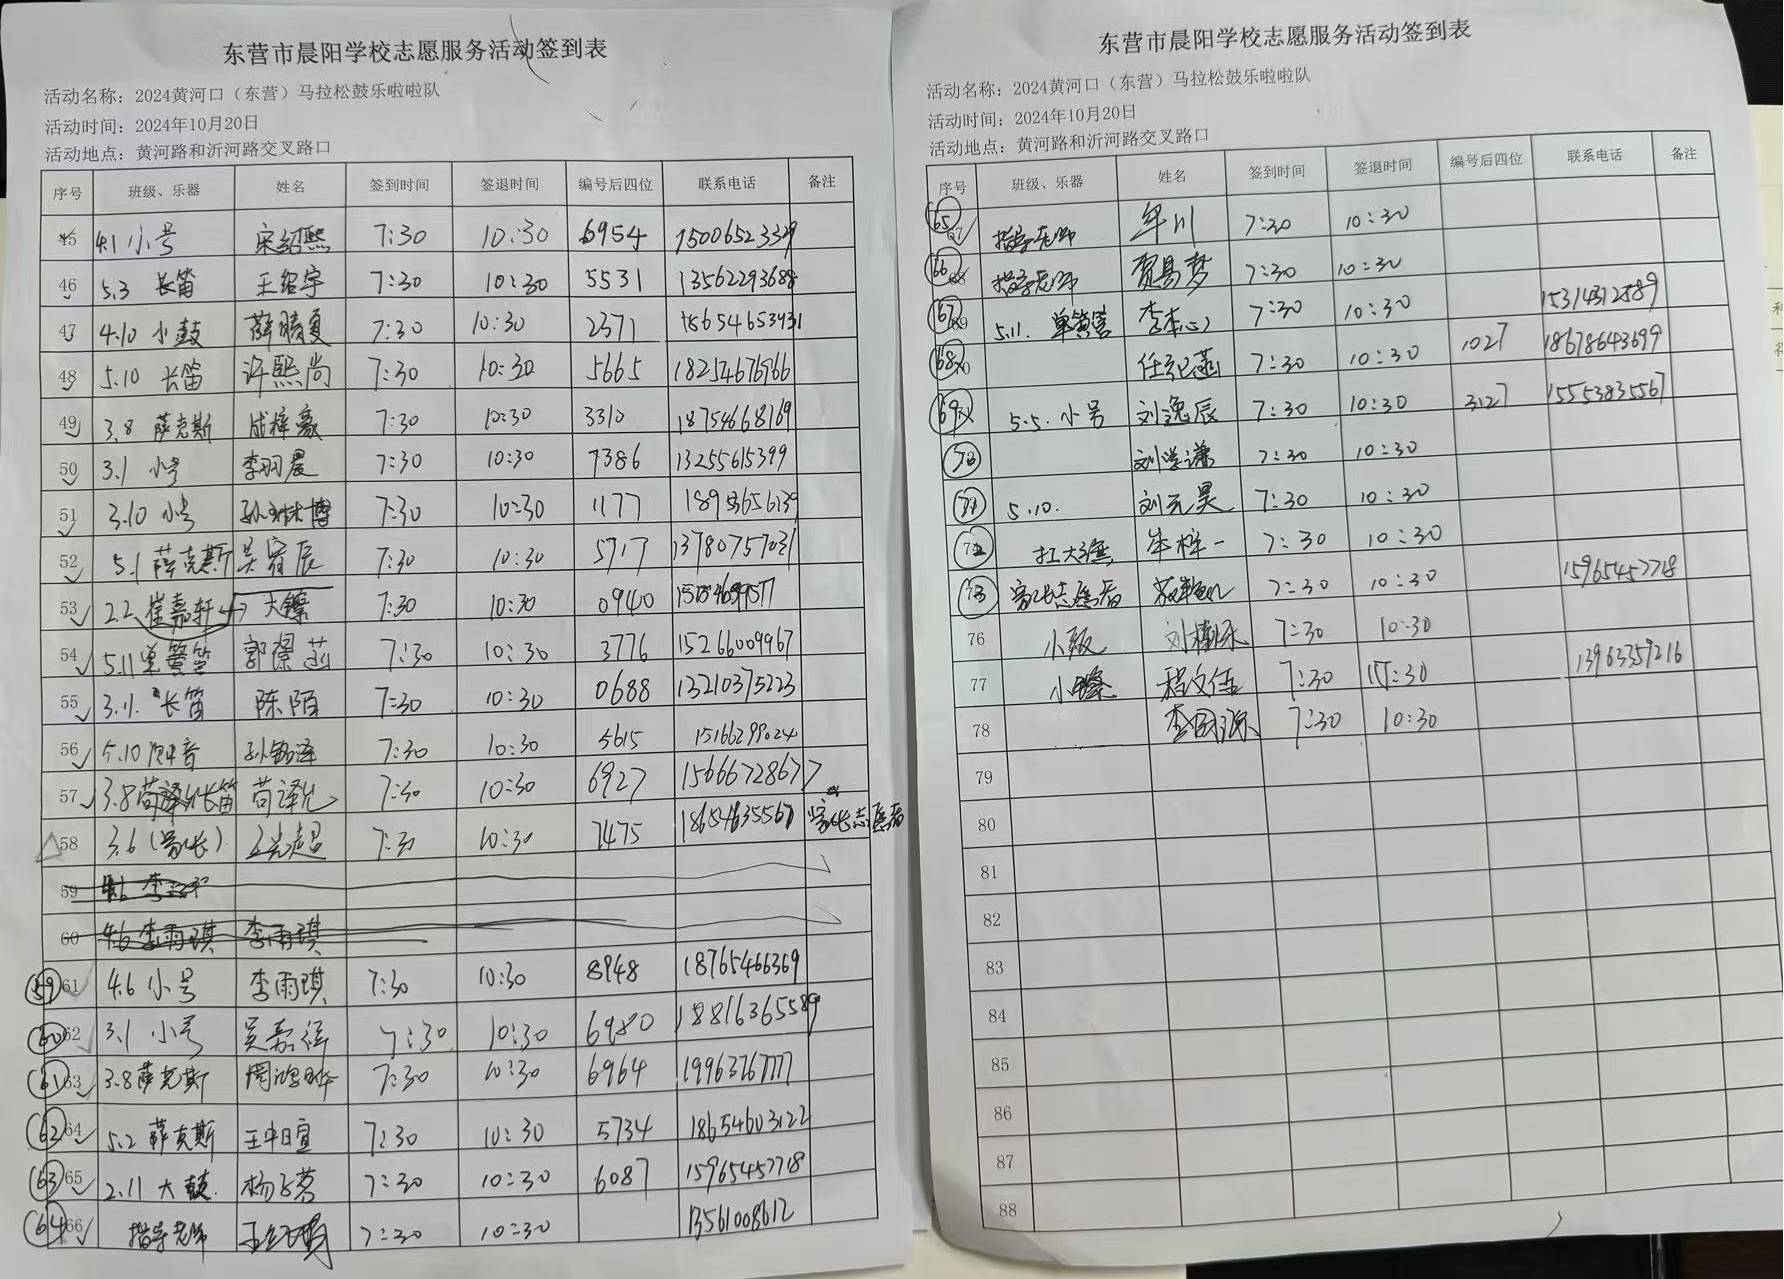 东营市晨阳学校志愿服务活动签到表
活动名称：2024黄河口（东营）马拉松鼓乐啦啦队
活动时间：2024年10月20日
活动地点：黄河路和沂河路交叉路口
序号 班级、乐器 姓名 签到时间 签退时间 编号后四位 联系电话 备注
45 4.1 小号 宋绍熙 7:30 10:30 6954 15006523329
46 5.3 长笛 王绍宇 7:30 10:30 5531 13562293688
47 4.10 小鼓 薛晴夏 7:30 10:30 2371 18654653931
48 5.10 长笛 许熙尚 7:30 10:30 5665 18254676966
49 3.8 萨克斯 成梓豪 7:30 10:30 3310 18754668169
50 3.1 小号 李羽晨 7:30 10:30 7386 13255615399
51 3.10 小号 7:30 10:30 1177
52 5.1 萨克斯 吴宥辰 7:30 10:30 5717 13780757031
53 2.2 崔嘉轩 大镲 7:30 10:30 0940
54 5.11 单簧管 郭璟菡 7:30 10:30 3776 15266009967
55 3.11 长笛 陈陌 7:30 10:30 0688 13210375223
56 5.10 次中音 7:30 10:30 5615 15166299024
57 3.8 苟译允 长笛 苟译允 7:30 10:30 6927 15666728677
58 3.6（家长） 孟光超 7:30 10:30 7475 18654635567 家长志愿者
59 4.6
60 4.6 李雨琪 李雨琪
59 61 4.6 小号 李雨琪 7:30 10:30 8948 18765466369
60 62 3.1 小号 吴嘉祥 7:30 10:30 6980 18816365589
61 63 3.8 萨克斯 周鸿晔 7:30 10:30 6964 19963267777
62 64 5.2 萨克斯 王中日宣 7:30 10:30 5734 18654603122
63 65 2.11 大鼓 杨子茗 7:30 10:30 6087 15965457718
64 66 指导老师 7:30 10:30 13561008612
东营市晨阳学校志愿服务活动签到表
活动名称：2024黄河口（东营）马拉松鼓乐啦啦队
活动时间：2024年10月20日
活动地点：黄河路和沂河路交叉路口
序号 班级、乐器 姓名 签到时间 签退时间 编号后四位 联系电话 备注
65 67 指导老师 牟川 7:30 10:30
66 68 指导老师 贾易梦 7:30 10:30
67 69 5.11. 单簧管 李本心 7:30 10:30 15314312589
68 70 任纪菡 7:30 10:30 1027 18678643699
69 71 5.5. 小号 刘逸辰 7:30 10:30 3127 15553835567
70 刘学谦 7:30 10:30
71 5.10. 刘元昊 7:30 10:30
72 扛大旗 牟梓一 7:30 10:30
73 家长志愿者 7:30 10:30 15965457718
76 7:30 10:30
77 程文佳 7:30 10:30 13963359216
78 7:30 10:30
79
80
81
82
83
84
85
86
87
88